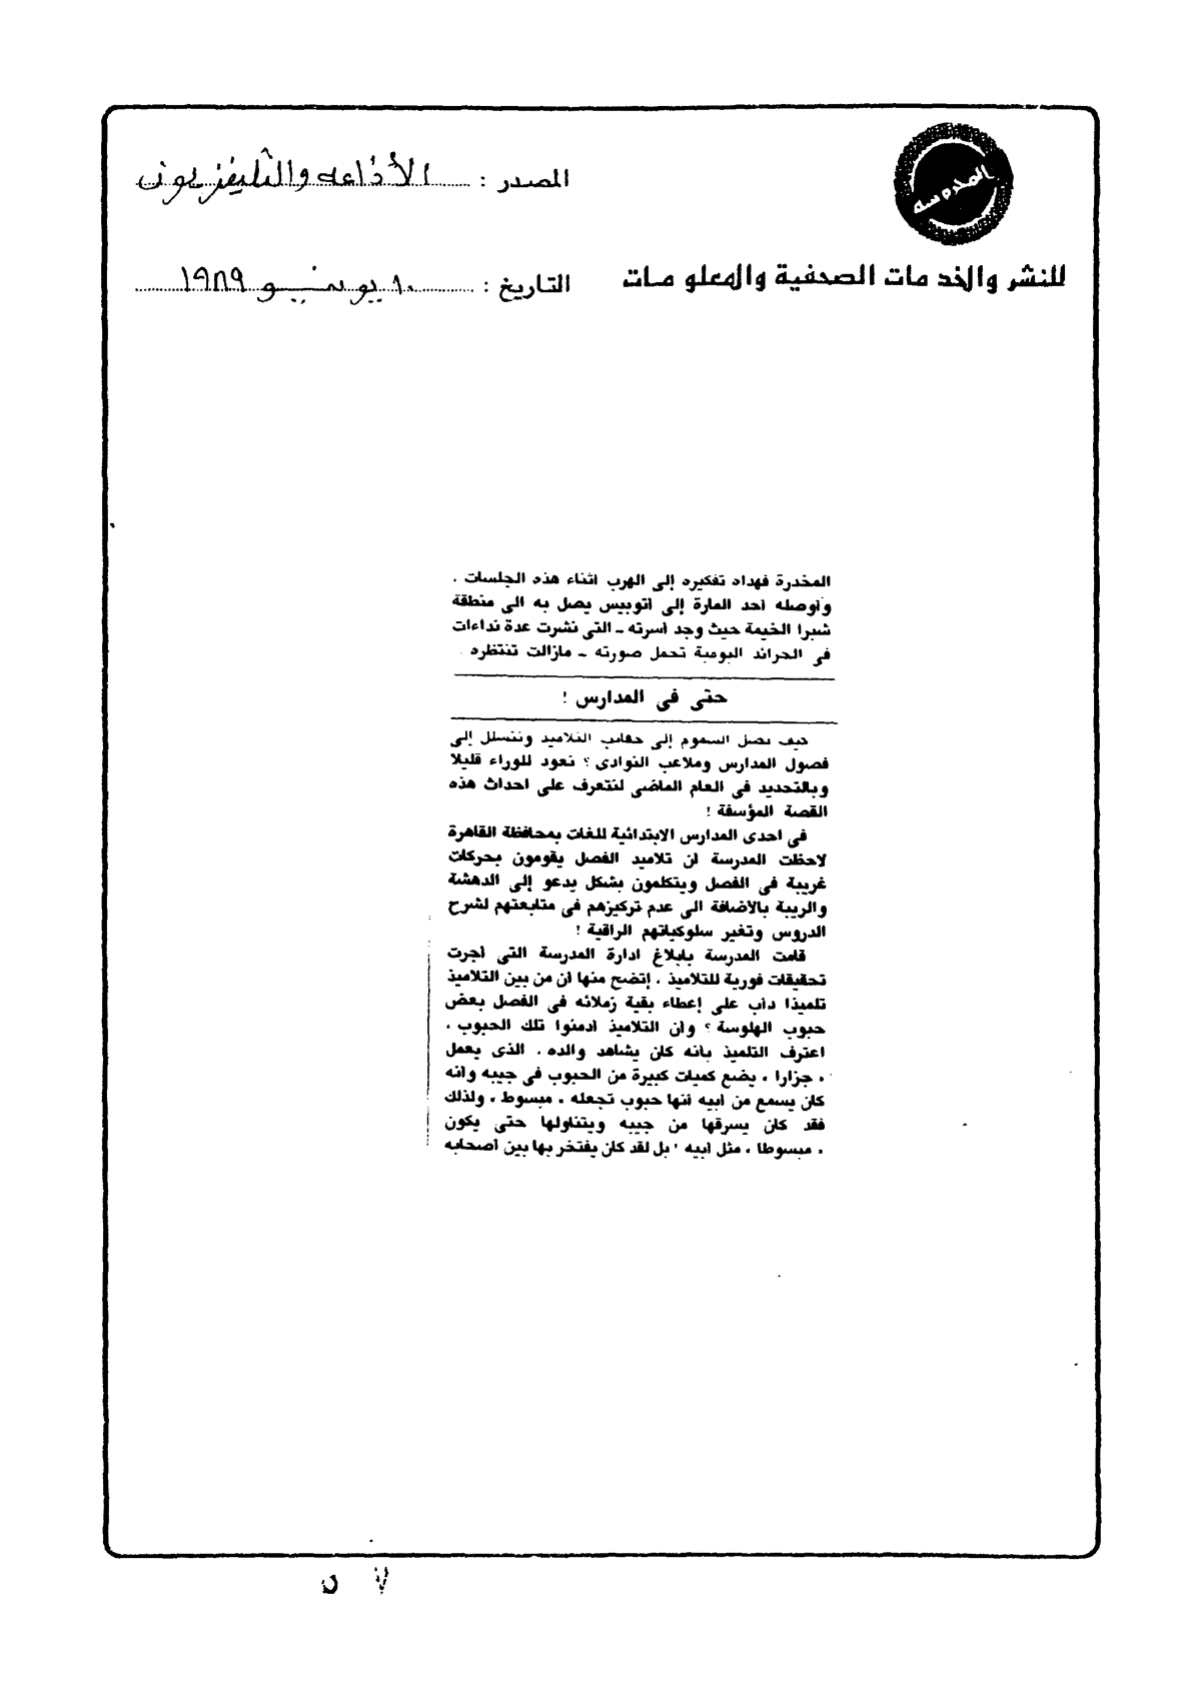 المدرسة
المصدر : الأذاعه والتليفزيون
للنشر والخدمات الصحفية والمعلومات
التاريخ : ١٠ يونيو ١٩٨٩
المخدرة فهداه تفكيره إلى الهرب اثناء هذه الجلسات .
وأوصله أحد المارة إلى اتوبيس يصل به الى منطقة
شبرا الخيمة حيث وجد أسرته - التى نشرت عدة نداءات
فى الجرائد اليومية تحمل صورته - مازالت تنتظره .
حتى فى المدارس !
كيف تصل السموم إلى حقائب التلاميذ وتتسلل إلى
فصول المدارس وملاعب النوادى ؟ نعود للوراء قليلا
وبالتحديد فى العام الماضى لنتعرف على احداث هذه
القصة المؤسفة !
فى احدى المدارس الابتدائية للغات بمحافظة القاهرة
لاحظت المدرسة أن تلاميذ الفصل يقومون بحركات
غريبة فى الفصل ويتكلمون بشكل يدعو إلى الدهشة
والريبة بالاضافة الى عدم تركيزهم فى متابعتهم لشرح
الدروس وتغير سلوكياتهم الراقية !
قامت المدرسة بابلاغ ادارة المدرسة التى أجرت
تحقيقات فورية للتلاميذ . إتضح منها أن من بين التلاميذ
تلميذا دأب على إعطاء بقية زملائه فى الفصل بعض
حبوب الهلوسة ؟ وأن التلاميذ أدمنوا تلك الحبوب .
اعترف التلميذ بأنه كان يشاهد والده . الذى يعمل
، جزارا ، يضع كميات كبيرة من الحبوب فى جيبه وأنه
كان يسمع من أبيه أنها حبوب تجعله ، مبسوط ، ولذلك
فقد كان يسرقها من جيبه ويتناولها حتى يكون
، مبسوطا ، مثل أبيه ' بل لقد كان يفتخر بها بين أصحابه
٥ ٧